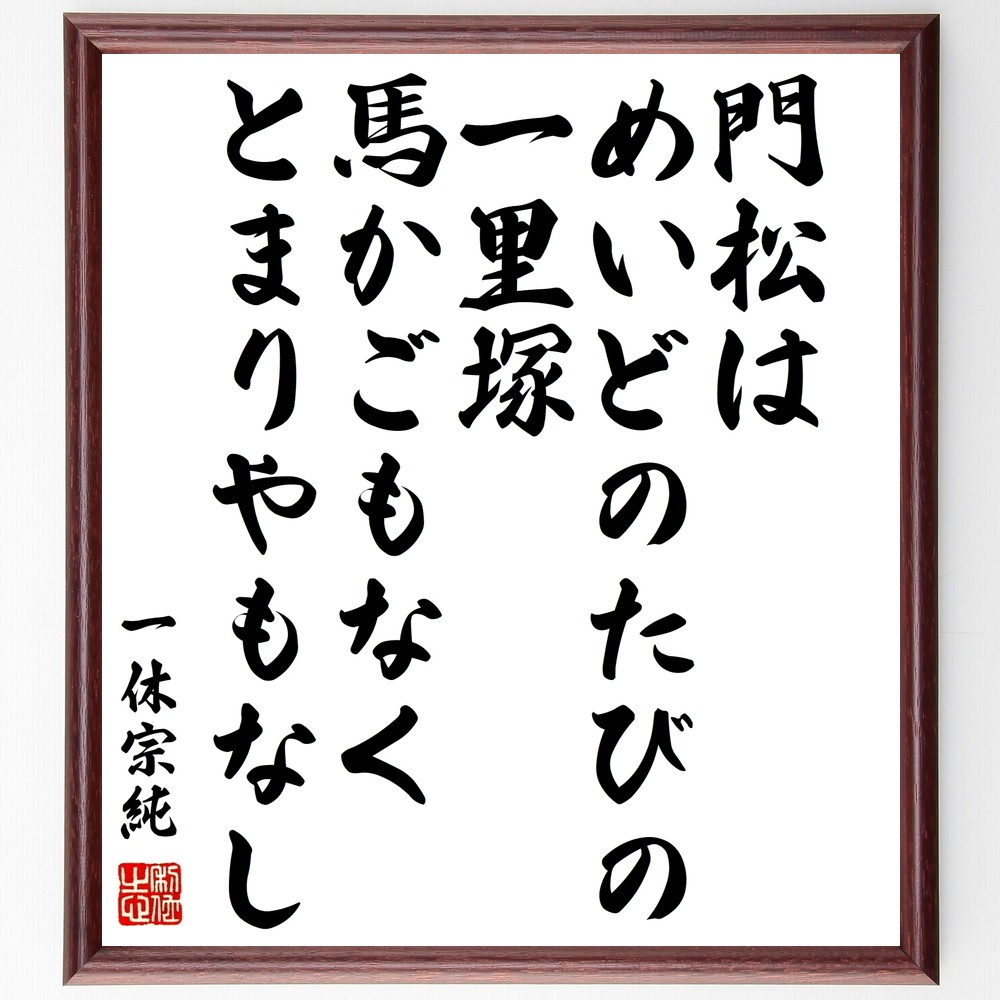 門松は
めいどのたびの
一里塚
馬かごもなく
とまりやもなし
一休宗純